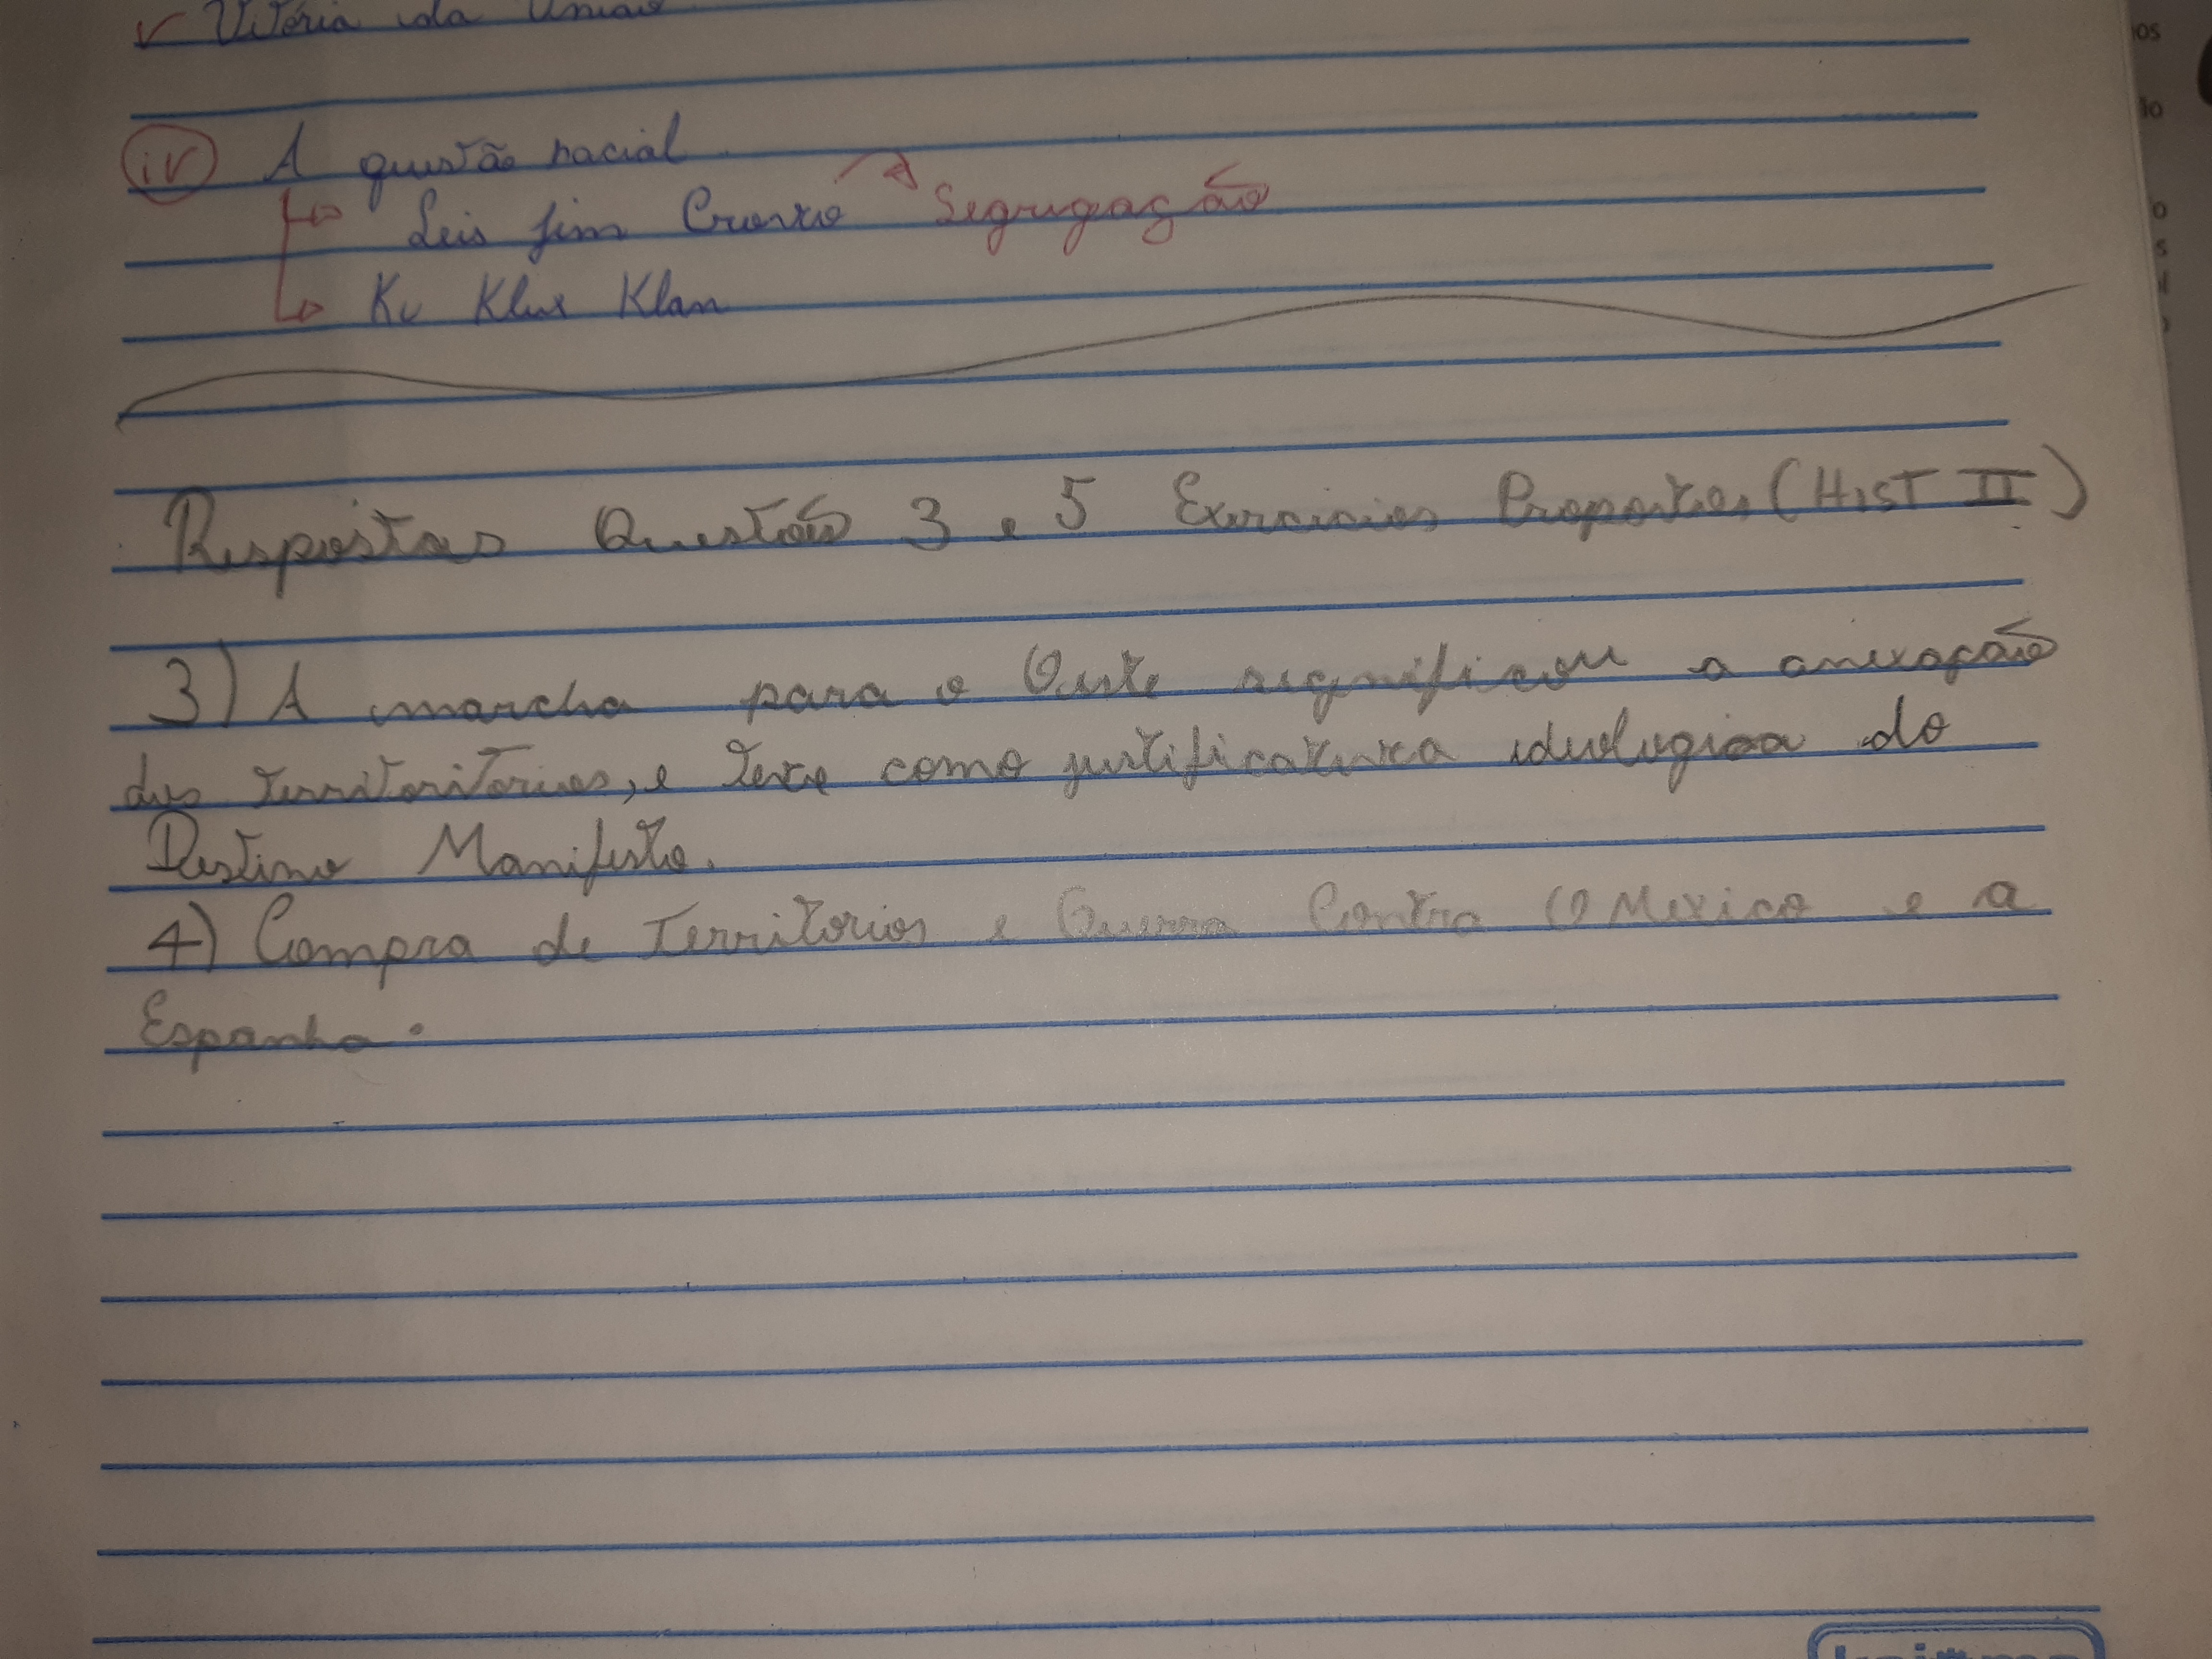 ✓ Vitória da União
iv A questão racial
Leis Jim Crowo Segregação
Ku Klux Klan
Respostas Questões 3 e 5 Exercicios Propostos (HIST II)
3) A marcha para o Oeste significou a anexação
dos territoritorios, e teve como justificativa ideologica do
Destino Manifesto.
4) Compra de Territorios e Guerra Contra O Mexico e a
Espanha.